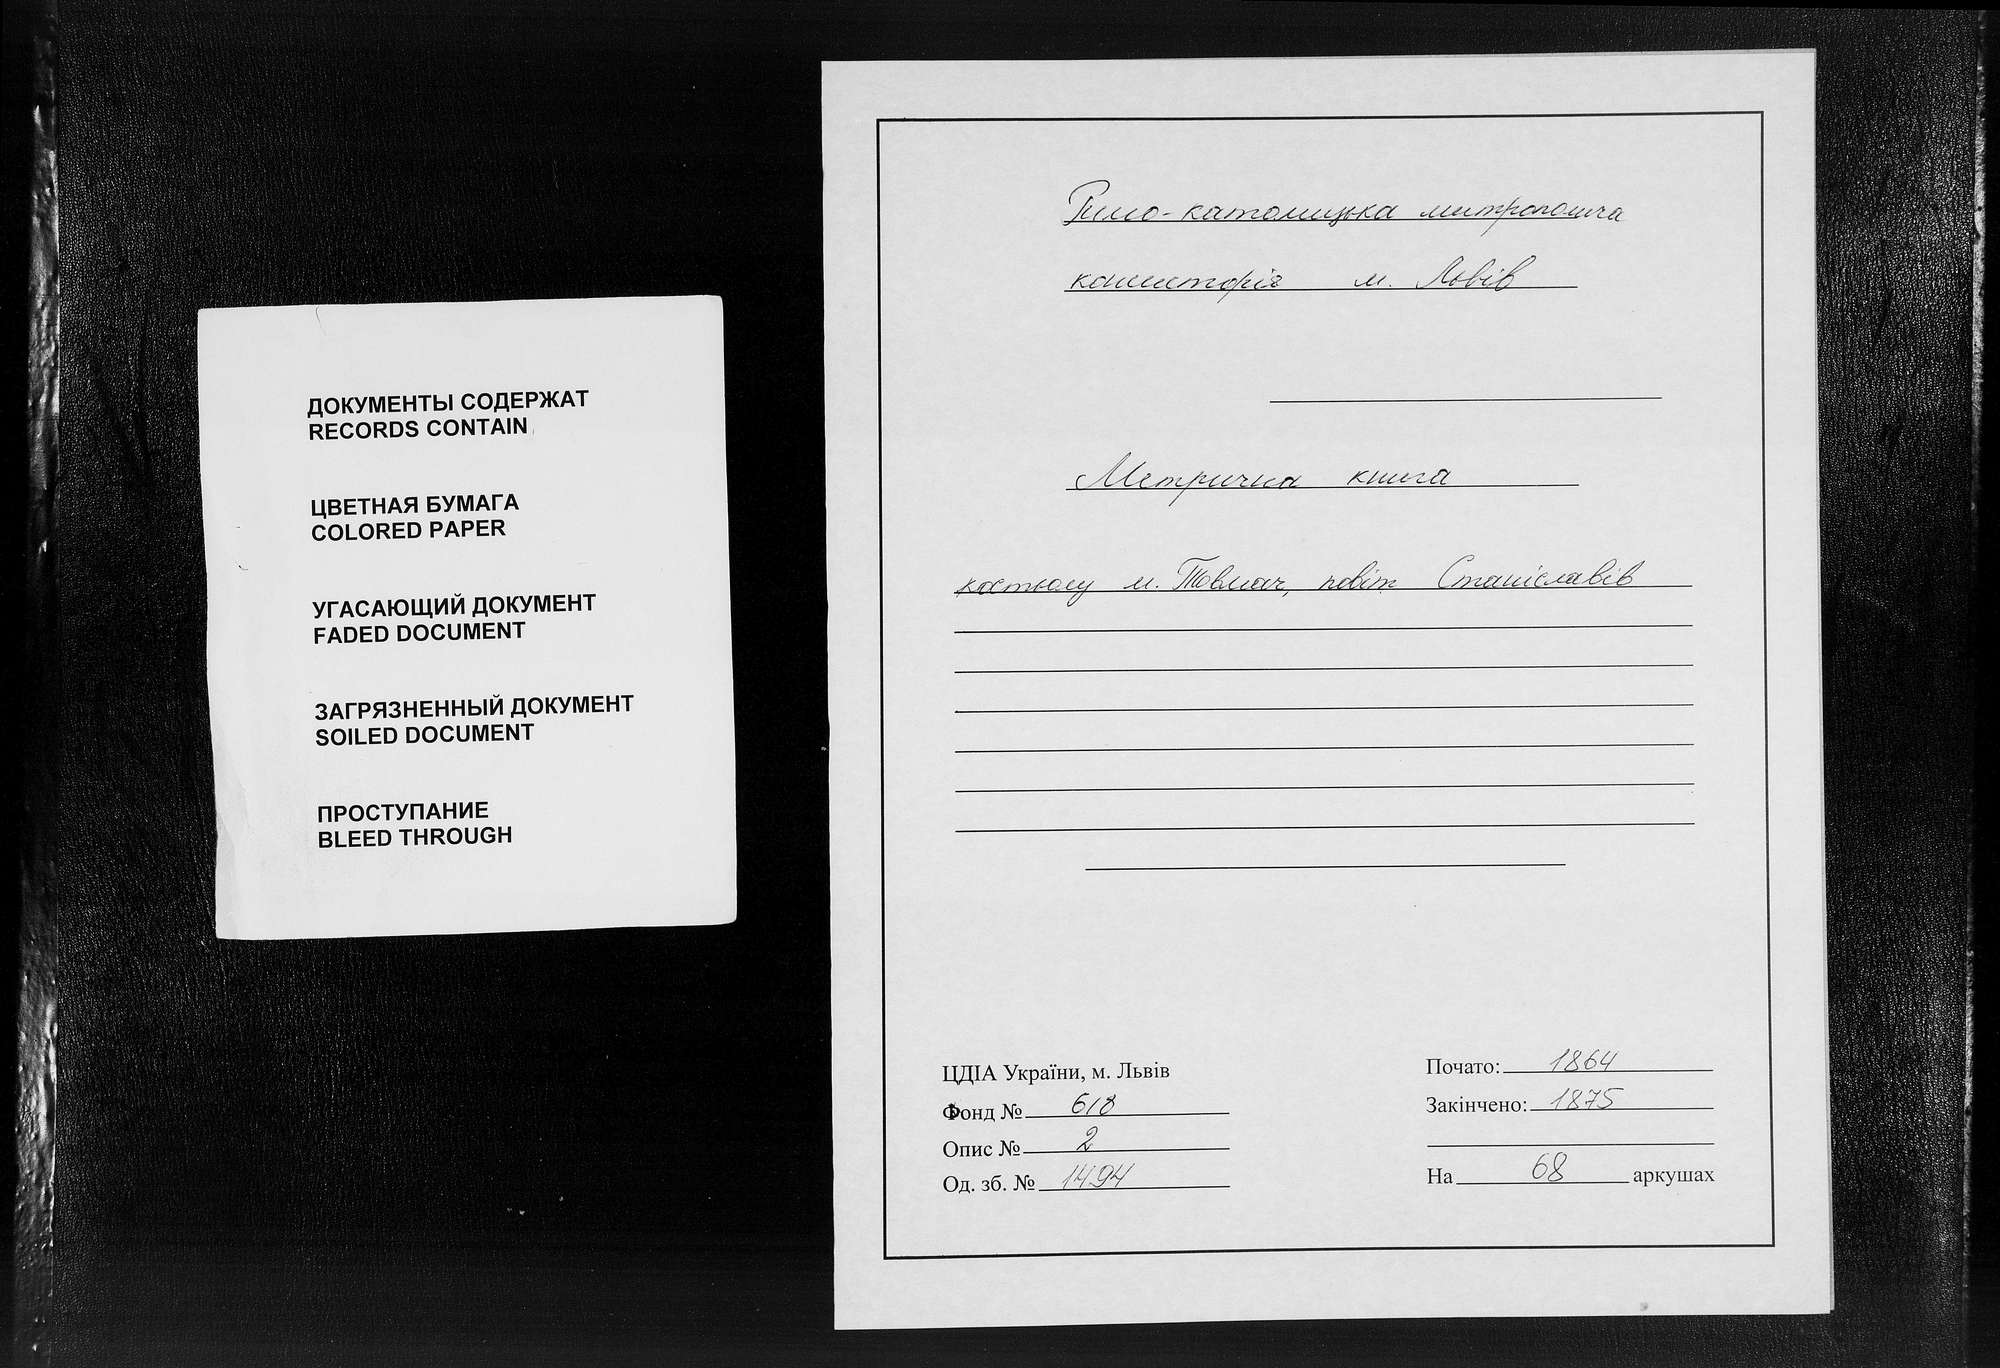 ДОКУМЕНТЫ СОДЕРЖАТ
RECORDS CONTAIN
ЦВЕТНАЯ БУМАГА
COLORED PAPER
УГАСАЮЩИЙ ДОКУМЕНТ
FADED DOCUMENT
ЗАГРЯЗНЕННЫЙ ДОКУМЕНТ
SOILED DOCUMENT
ПРОСТУПАНИЕ
BLEED THROUGH
Римо-католицька митрополича
консисторія м. Львів
Метрична книга
костьолу м. Товмач, повіт Станіславів
ЦДІА України, м. Львів
Фонд № 618
Опис № 2
Од. зб. № 1494
Почато: 1864
Закінчено: 1875
На 68 аркушах